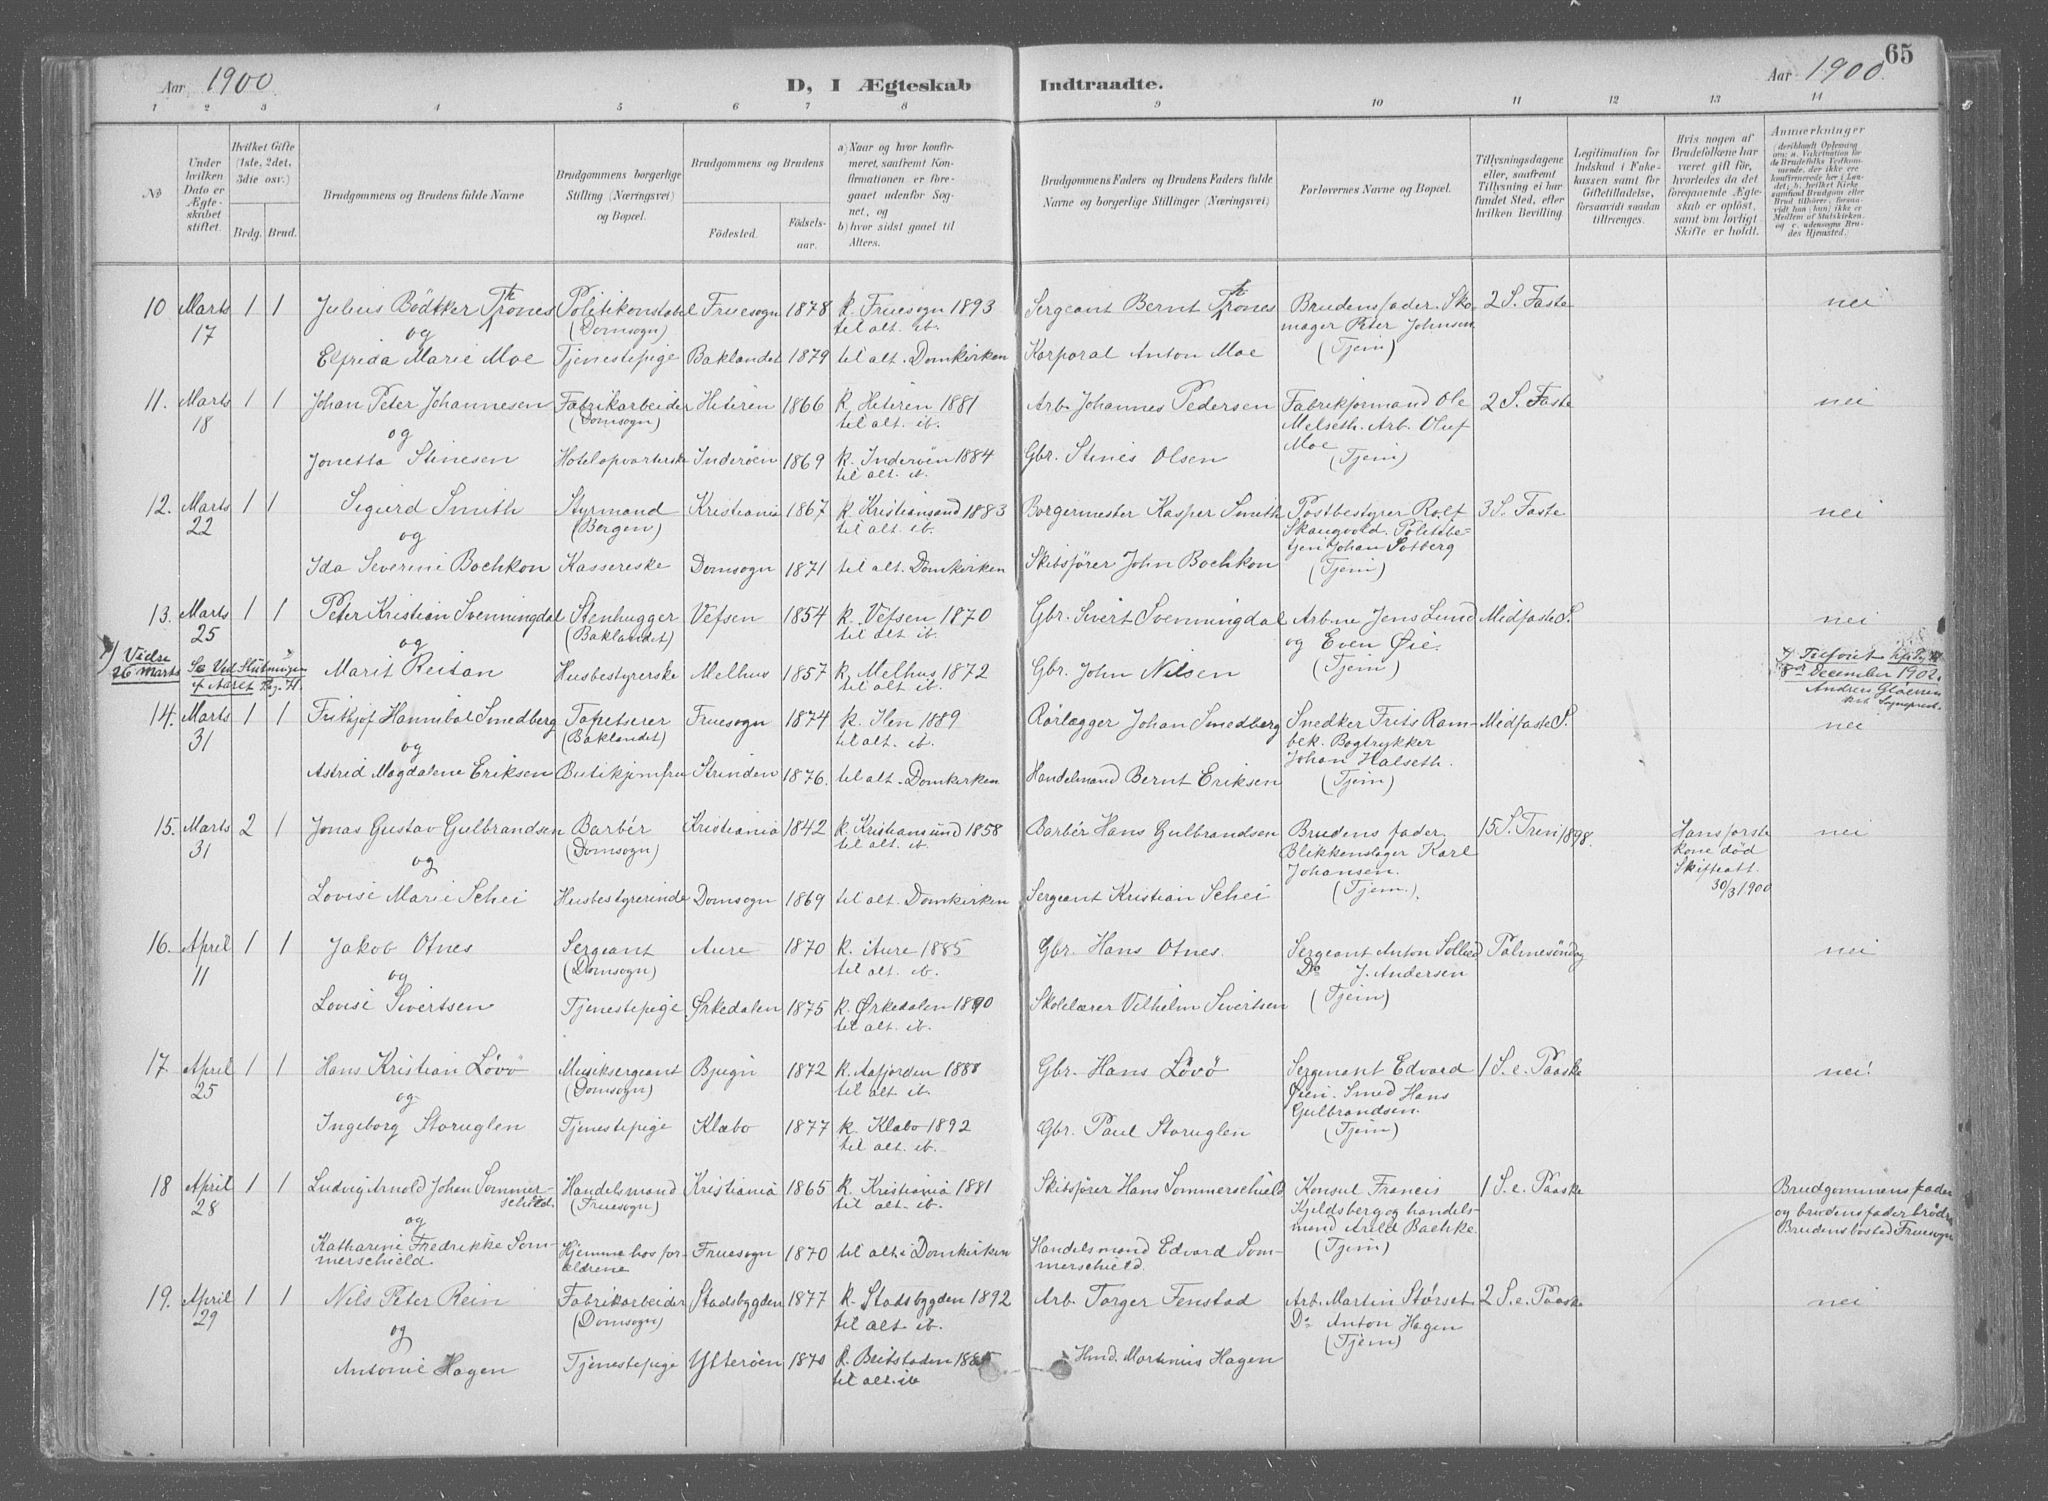 65
Aar 1900.
D, I Ægteskab Indtraadte.
Aar 1900.
1 2 3 4 5 6 7 8 9 10 11 12 13 14
No
Under hvilken Dato er Ægteskabet stiftet.
Hvilket Gifte (1ste, 2det, 3die osv.)
Brdg. Brud.
Brudgommens og Brudens fulde Navne
Brudgommens borgerlige Stilling (Næringsvei) og Bopæl.
Brudgommens og Brudens
Fødested. Fødselsaar.
a) Naar og hvor konfirmeret, saafremt Konfirmationen er foregaaet udenfor Sognet, og
b) hvor sidst gaaet til Alters.
Brudgommens Faders og Brudens Faders fulde Navne og borgerlige Stillinger (Næringsvei)
Forlovernes Navne og Bopæl.
Tillysningsdagene eller, saafremt Tillysning ei har fundet Sted, efter hvilken Bevilling.
Legitimation for Indskud i Enkekassen samt for Giftetilladelse, forsaavidt saadan tiltrænges.
Hvis nogen af Brudefolkene har været gift før, hvorledes da det foregaaende Ægteskab er opløst, samt om lovligt Skifte er holdt.
Anmærkninger (deriblandt Oplysning om: a. Vakcination for de Brudefolks Vedkommende, der ikke ere konfirmerede her i Landet; b. hvilket Kirkesamfund Brudgom eller Brud tilhører, forsaavidt han (hun) ikke er Medlem af Statskirken, og c. udensogns Brudes Hjemsted.
10 Marts 1 1 Julius Bödtker Thrones Politikonstabel Fruesogn 1878 k. Fruesogn 1893 Sergeant Bernt Thrones Brudens fader. Sko- 2 S. Faste nei
17 og (Domsogn) til alt. ib. mager Peter Johnsen
Elfrida Marie Moe Tjenestepige Baklandet 1879 til alt. Domkirken Korporal Anton Moe (Tjem)
11. Marts 1 1 Johan Peter Johannesen Fabrikarbeider Hiteren 1866 k. Hiteren 1881 Arb. Johannes Pedersen Fabrikformand Ole 2 S. Faste nei
18 og (Domsogn) til alt. ib. Melseth. Arb. Oluf
Jonetta Stinesen Hotelopvarterske Inderöen 1869 k. Inderöen 1884 Gbr. Stines Olsen Moe (Tjem)
til alt. ib.
12. Marts 1 1 Sigurd Smith Styrmand Kristiania 1867 k. Kristiansand 1883 Borgermester Kasper Smith Postbestyrer Rolf 3 S. Faste nei
22 og (Bergen) til alt. ib. Skaugvold. Politibe-
Ida Severine Bochkon Kassereske Domsogn 1871 til alt. Domkirken Skibsfører John Bochkon tjen Johan Solberg
(Tjem)
13. Marts 1 1 Peter Kristian Svenningdal Stenhugger Vefsen 1854 k. Vefsen 1870 Gbr. Sivert Svenningdal Arbne Jens Lund Midfaste S. nei
25 og (Baklandet) til alt ib. og Even Øie.
Vidse 26 Marts Se Ved Slutningen af Aaret Pag. 71. Marit Reitan Husbestyrerske Melhus 1857 k. Melhus 1872 Gbr. John Nilsen (Tjem) Tilføiet
til alt. ib. 8de December 1902.
14. Marts 1 1 Fritjof Hannibal Smedberg Tapetserer Fruesogn 1874 k. Ilen 1889 Rørlægger Johan Smedberg Snedker Frits Ram- Midfaste S. nei
31 og (Baklandet) til alt. ib. bek. Bogtrykker
Astrid Magdalene Eriksen Butikjomfru Strinden 1876. til alt. Domkirken Handelmand Bernt Eriksen Johan Halseth.
(Tjem)
15. Marts 2 1 Jonas Gustav Gulbrandsen Barbér Kristiania 1842 k. Kristiansund 1858 Barbér Hans Gulbrandsen Brudens fader, 15 S. Trin 1898. Hans første nei
31 og (Domsogn) til alt. ib. Blikkenslager Karl kone död
Lovise Marie Schei Husbestyrerinde Domsogn 1869 til alt. Domkirken Sergeant Kristian Schei Johansen. Skifteatt.
(Tjem.) 30/3 1900
16. April 1 1 Jakob Otnes Sergeant Aure 1870 k. i Aure 1885 Gbr. Hans Otnes. Sergeant Anton Solliad Palmesöndag nei
11 og (Domsogn) til alt. ib. Do J. Andersen
Lovise Sivertsen Tjenestepige Ørkedalen 1875 k. Ørkedalen 1890 Skolelærer Vilhelm Sivertsen (Tjem)
til alt. ib.
17. April 1 1 Hans Kristian Lövö Musiksergeant Bjugn 1872 k. Aafjorden 1888 Gbr. Hans Lövö Sergeant Edvard 1 S. e. Paaske nei.
25 og (Domsogn) til alt. ib. Øien. Smed Hans
Ingeborg Storuglen Tjenestepige Klæbo 1877 k. Klæbo 1892 Gbr. Paul Storuglen Gulbrandsen.
til alt. ib. (Tjem)
18 April 1 1 Ludvig Arnold Johan Sommer- Handelsmand Kristiania 1865 k. Kristiania 1881 Skibsfører Hans Sommerschield Konsul Francis 1 S. e. Paaske Brudgommens fader
28 schield. (Fruesogn) til alt. ib. Kjeldsberg og handels- og brudens fader brödre
og mand Arild Bachke. Brudens bosted Fruesogn
Katharine Fredrikke Som- Hjemme hos for- Fruesogn 1870 til alt i Domkirken Handelsmand Edvard Som- (Tjem)
merschield. ældrene merschield.
19. April 1 1 Nils Peter Rein Fabrikarbeider Stadsbygden 1877 k. Stadsbygden 1892 Arb. Torger Fenstad Arb. Martin Störset 2 S. e. Paaske nei
29 og (Domsogn) til alt. ib. Do Anton Hagen
Antonie Hagen Tjenestepige Ytteröen 1870 k. Beitstaden 1885 Hmd. Martinius Hagen (Tjem)
til alt. ib